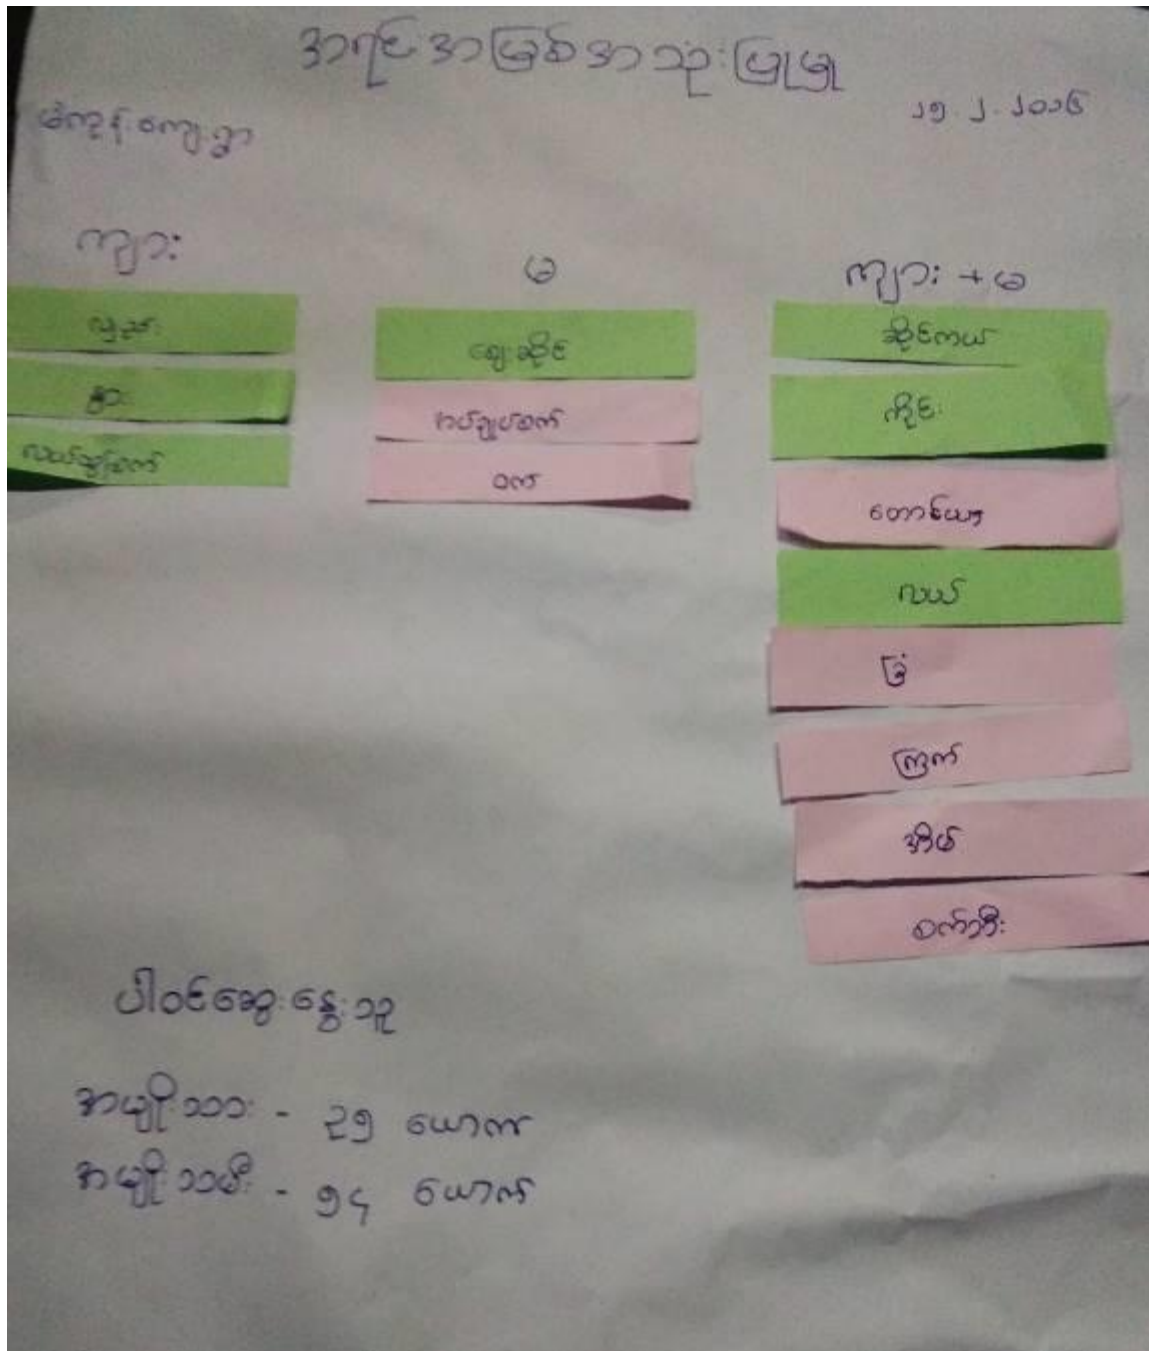 အရင်းအမြစ်အသုံးပြုမှု
မဲကွန်းကျေးရွာ
၂၅.၂.၂၀၁၆
ကျား
မ
ကျား + မ
လှည်း
နွား
လယ်ထွန်စက်
ဈေးဆိုင်
အပ်ချုပ်စက်
ဝက်
ဆိုင်ကယ်
ကိုင်း
တောင်ယာ
လယ်
ခြံ
ကြက်
အိမ်
စက်ဘီး
ပါဝင်ဆွေးနွေးသူ
အမျိုးသား - ၃၅ ယောက်
အမျိုးသမီး - ၅၄ ယောက်